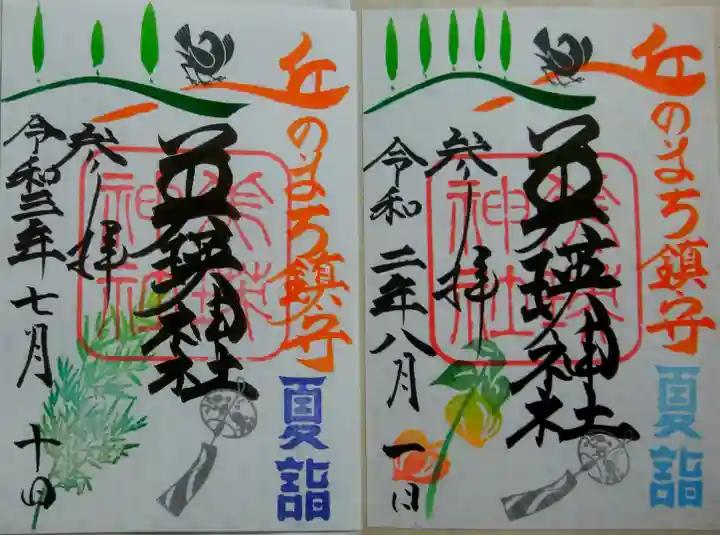 丘のまち鎮守
夏詣
美瑛神社
美瑛
神社
参拝
令和三年七月十日
丘のまち鎮守
夏詣
美瑛神社
美瑛
神社
参拝
令和二年八月一日